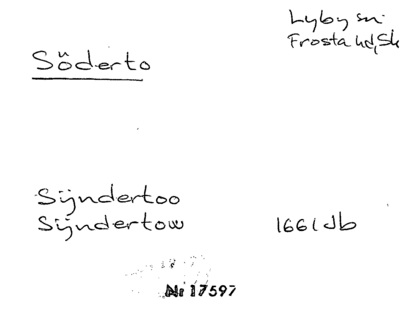 Lyby sn
Frosta hd, Sk
Söderto
Sÿndertoo
Sÿndertow 1661 Jb
Nr 17597